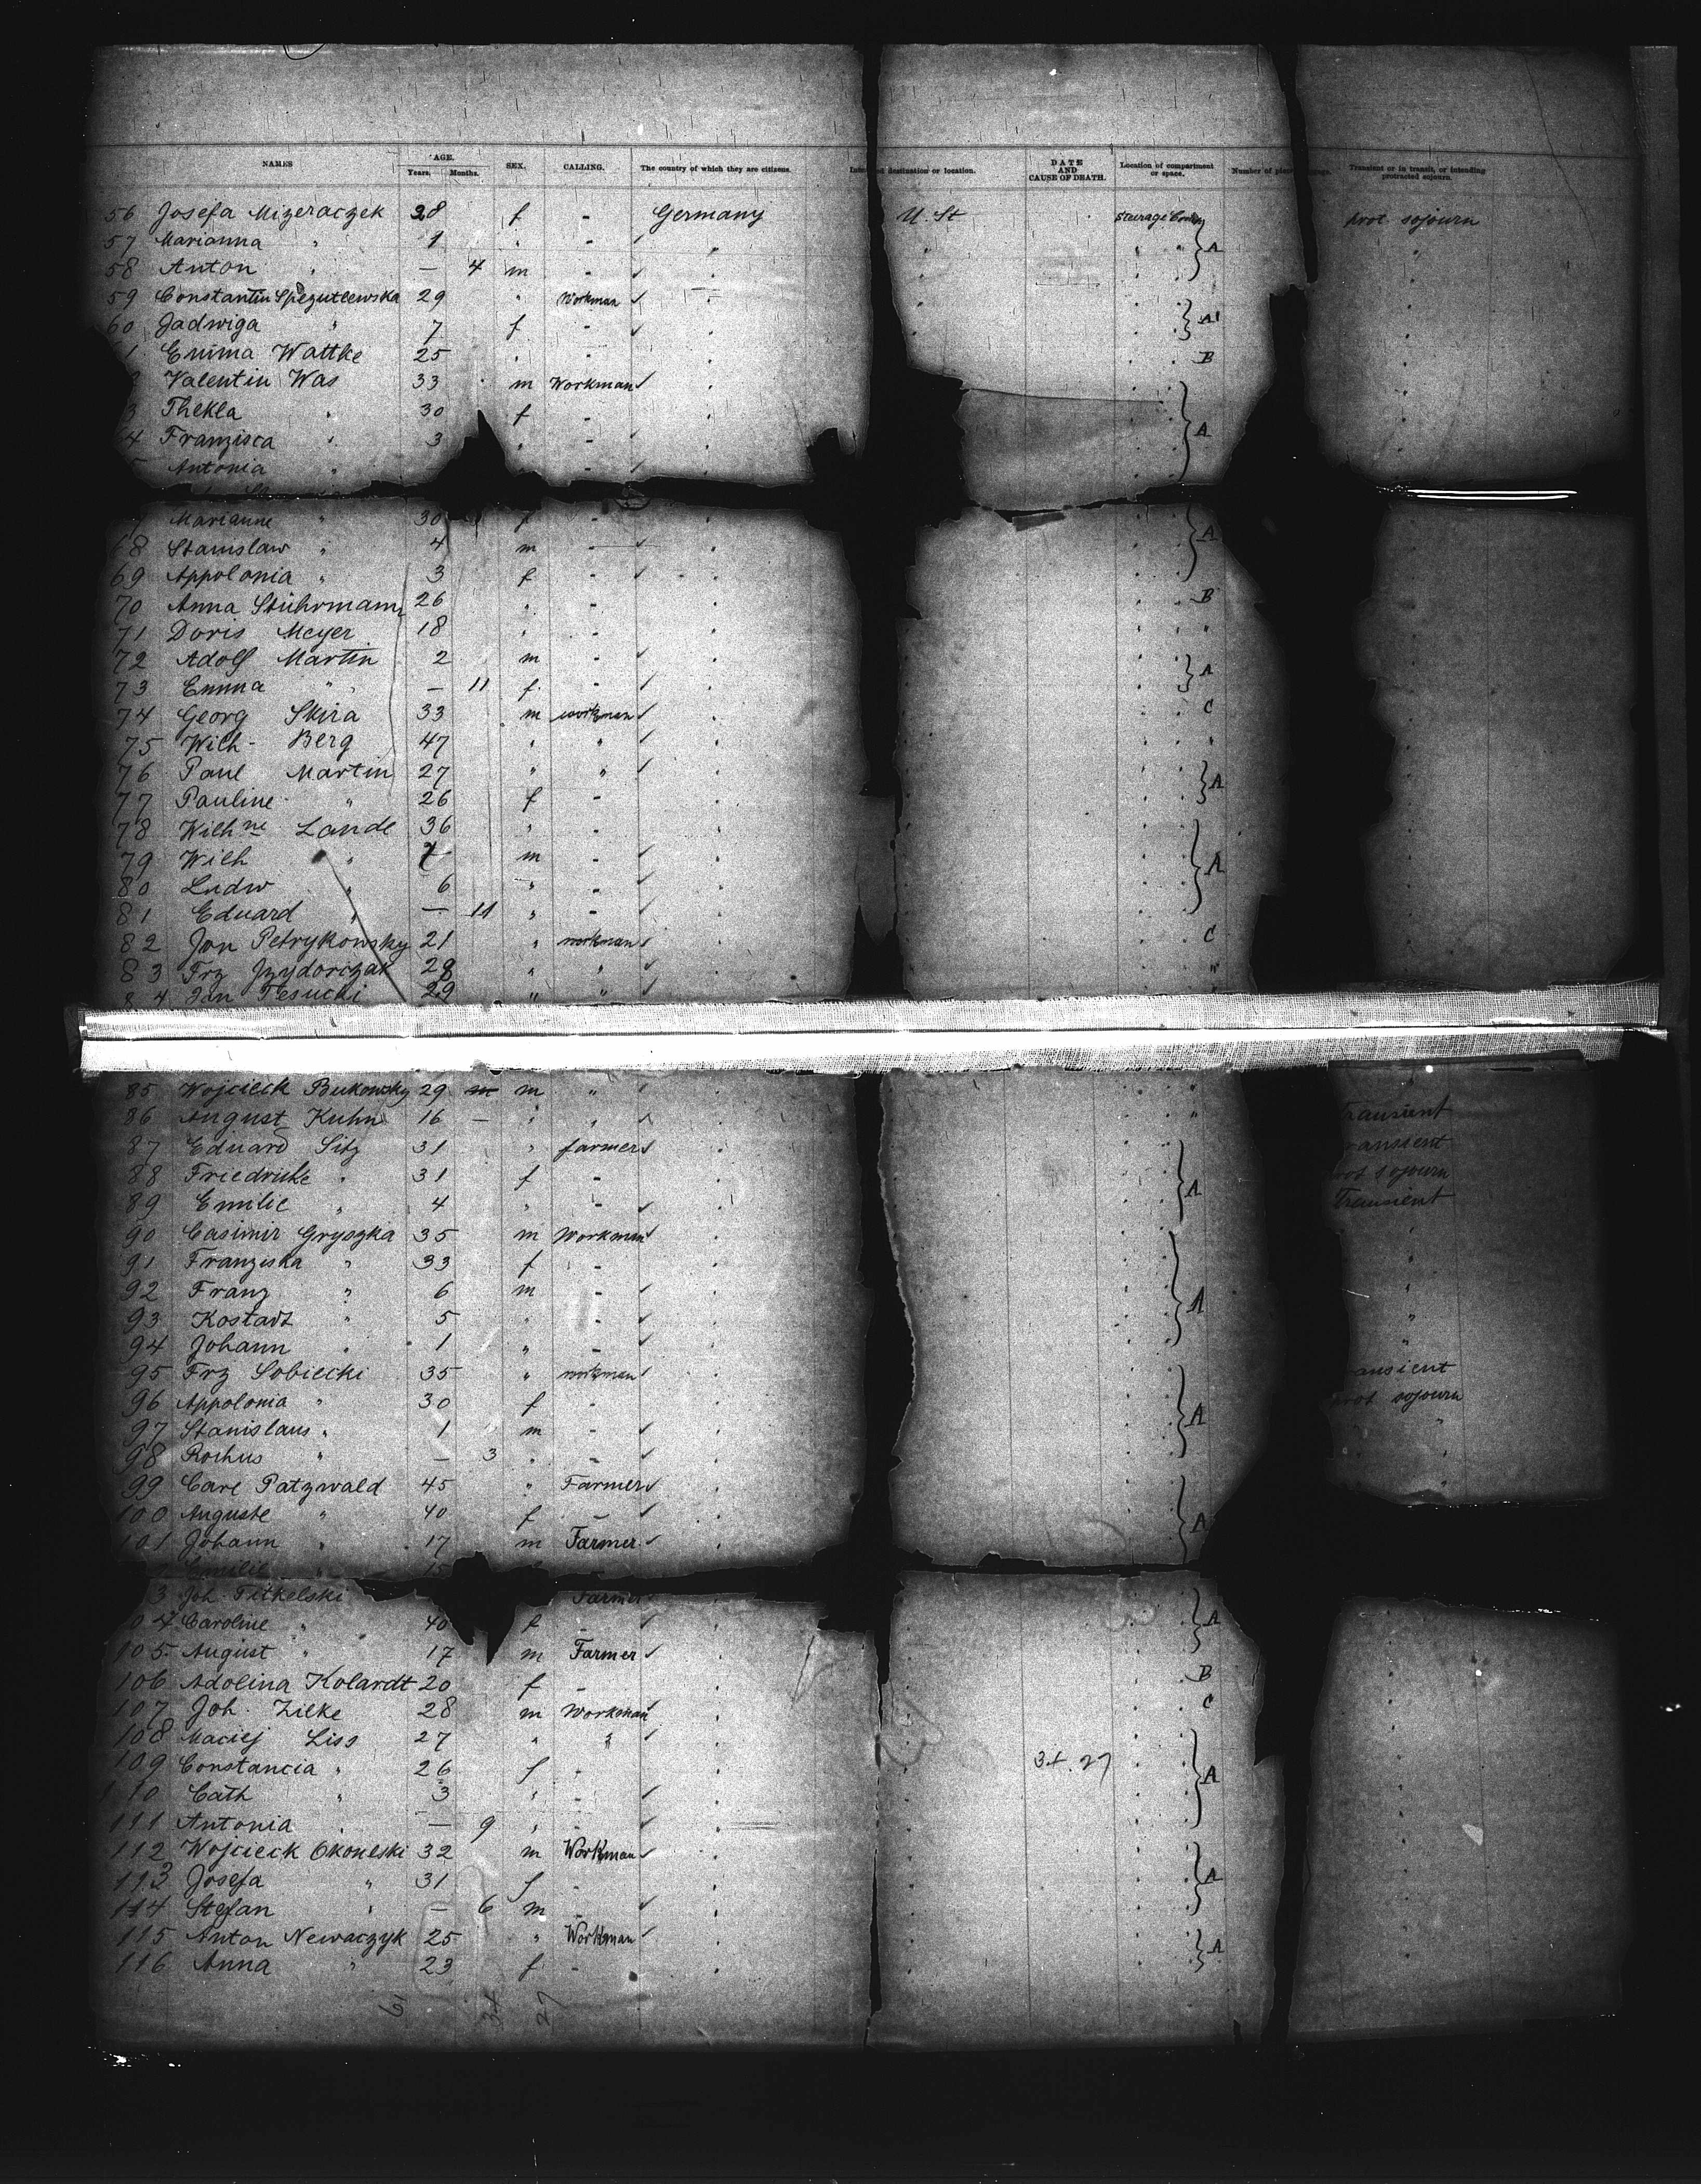 NAMES AGE. Years. Months. SEX. CALLING. The country of which they are citizens. destination or location. DATE AND CAUSE OF DEATH. Location of compartment or space. Number of Transient or in transit, or intending protracted sojourn.
56 Josefa Mizeraczek 28 f - Germany U. St prot. sojourn
57 Marianna " 1 " - " A
58 Anton " — 4 m -
59 29 " Workman
60 Jadwiga " 7 f - A
1 Emma Wattke 25 " - B
Valentin Was 33 m Workman
3 Thekla " 30 f -
4 Franzisca " 3 " - A
Antonia "
Marianne " 30 f -
68 Stanislaw " 4 m - A
69 Appolonia " 3 f -
70 Anna Stührmann 26 " - B
71 Doris Meyer 18 " - "
72 Adolf Martin 2 m - A
73 Emma " — 11 f -
74 Georg Skira 33 m workman C
75 Wilh- Berg 47 " " "
76 Paul Martin 27 " " A
77 Pauline " 26 f -
78 Wilhne Lande 36 " -
79 Wilh " 7 m - A
80 Ludw " 6 " -
81 Eduard " — 11 " -
82 Jan Petrykowsky 21 " workman C
83 Frz Jzydorczak 28 " " "
84 Jan 29 " "
85 Wojcieck Bukowsky 29 m m "
86 August Kuhn 16 — " " " transient
87 Eduard Sitz 31 " farmer ransient
88 Friedricke " 31 f - A rot sojourn
89 Emilie " 4 " - transient
90 Casimir Gryszka 35 m Workman
91 Franziska " 33 f -
92 Franz " 6 m - A
93 " 5 " -
94 Johann " 1 " -
95 Frz Sobiecki 35 " workman ansient
96 Appolonia " 30 f - A prot sojourn
97 Stanislaus " 1 m -
98 Rochus " — 3 " -
99 Carl Patzwald 45 " Farmer
100 Auguste " 40 f - A
101 Johann " 17 m Farmer
Emilie " 15
3 Joh. Farmer
04 Caroline " 40 f - A
105. August " 17 m Farmer
106 Adolina Kolardt 20 f - B
107 Joh. Zilke 28 m Workman C
108 Maciej Liss 27 " "
109 Constancia " 26 f - 34. 27 A
110 Cath " 3 " -
111 Antonia " — 9 " -
112 Wojcieck Okonski 32 m Workman
113 Josefa " 31 f - A
114 Stefan " — 6 m -
115 Anton Newaczyk 25 " Workman A
116 Anna " 23 f -
61 34 27